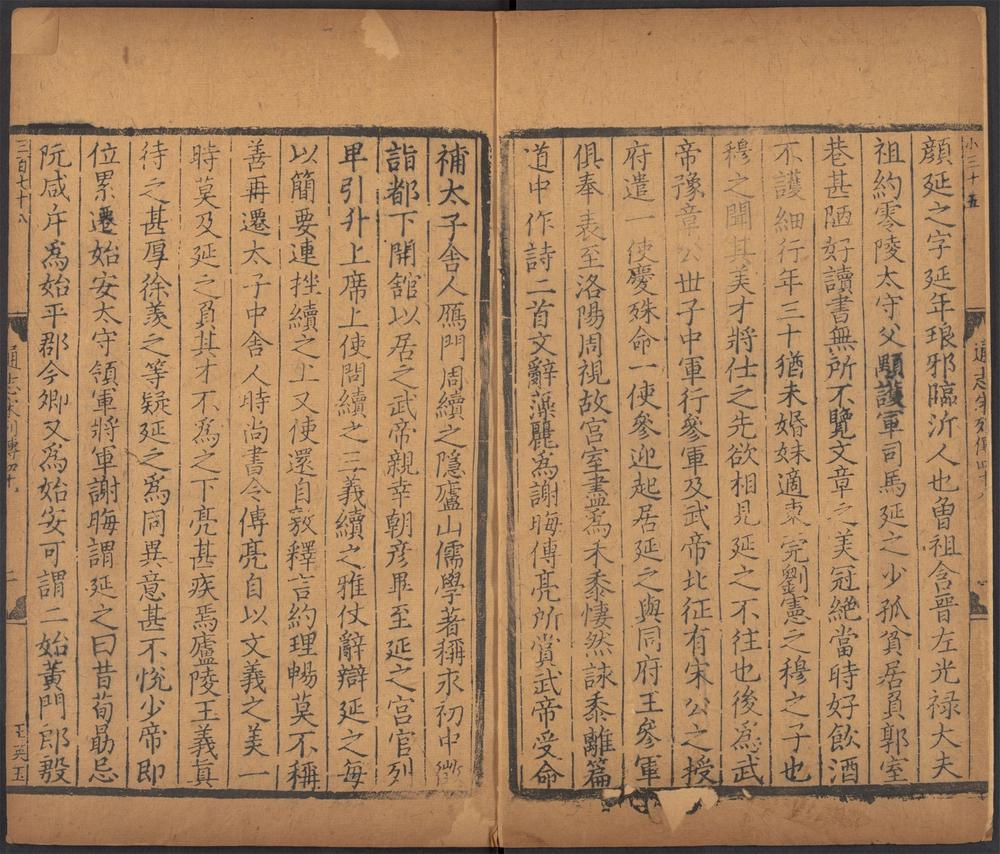 小三十五
顔延之字延年琅邪臨沂人也曾祖含晉左光禄大夫
祖約零陵太守父顒護軍司馬延之少孤貧居負郭室
巷甚陋好讀書無所不覽文章之美冠絶當時好飲酒
不護細行年三十猶未婚妹適東莞劉憲之穆之子也
穆之聞其美才將仕之先欲相見延之不往也後爲武
帝豫章公世子中軍行參軍及武帝北征有宋公之授
府遣一使慶殊命一使參迎起居延之與同府王參軍
俱奉表至洛陽周視故宫室盡爲禾黍悽然詠黍離篇
道中作詩二首文辭藻麗爲謝晦傅亮所賞武帝受命
補太子舍人鴈門周續之隱廬山儒學著稱永初中徵
詣都下開舘以居之武帝親幸朝彦畢至延之宫官列
卑引升上席上使問續之三義續之雅仗辭辯延之每
以簡要連挫續之上又使還自敷釋言約理暢莫不稱
善再遷太子中舍人時尚書令傅亮自以文義之美一
時莫及延之負其才不爲之下亮甚疾焉廬陵王義真
待之甚厚徐羨之等疑延之爲同異意甚不悦少帝即
位累遷始安太守領軍將軍謝晦謂延之曰昔荀勗忌
阮咸斥爲始平郡今卿又爲始安可謂二始黄門郎殷
三百七十八
通志宋列傳四十八
二
王英玉